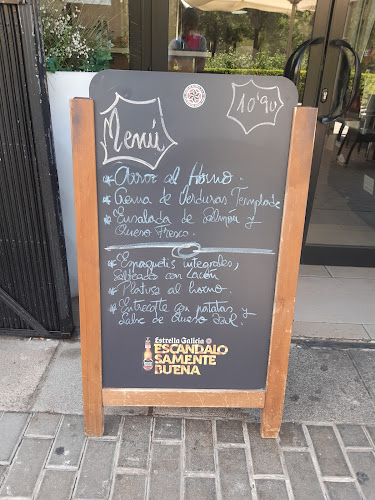 Menú
10'90
* Arroz al Horno.
* Crema de Verduras Templada
* Ensalada de Salmón y
Queso Fresco.
* Espaguetis integrales,
Salteado con Lacón
* Platusa al horno.
* Entrecotte con patatas y
Salsa de Queso Azul.
Estrella Galicia
ESCANDALO
SAMENTE
BUENA